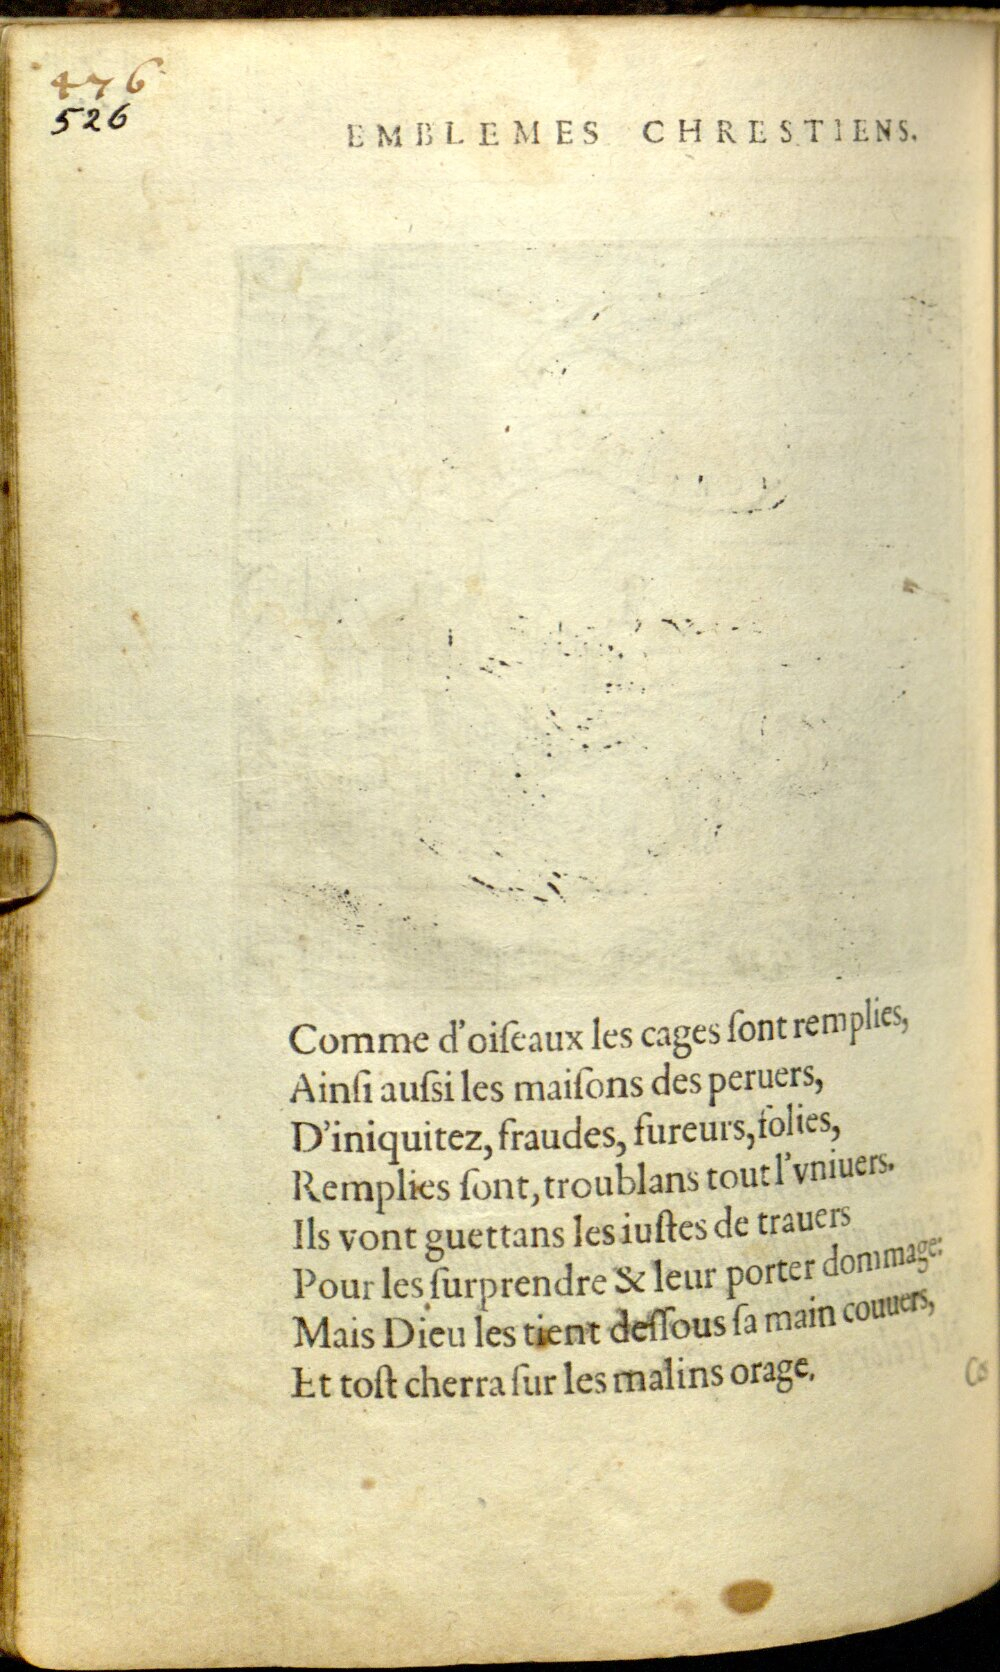 476
526
EMBLEMES CHRESTIENS.
Comme d'oiſeaux les cages ſont remplies,
Ainſi auſsi les maiſons des peruers,
D'iniquitez, fraudes, fureurs, folies,
Remplies ſont, troublans tout l'vniuers.
Ils vont guettans les iuſtes de trauers
Pour les ſurprendre & leur porter dommage:
Mais Dieu les tient deſſous ſa main couuers,
Et toſt cherra ſur les malins orage.